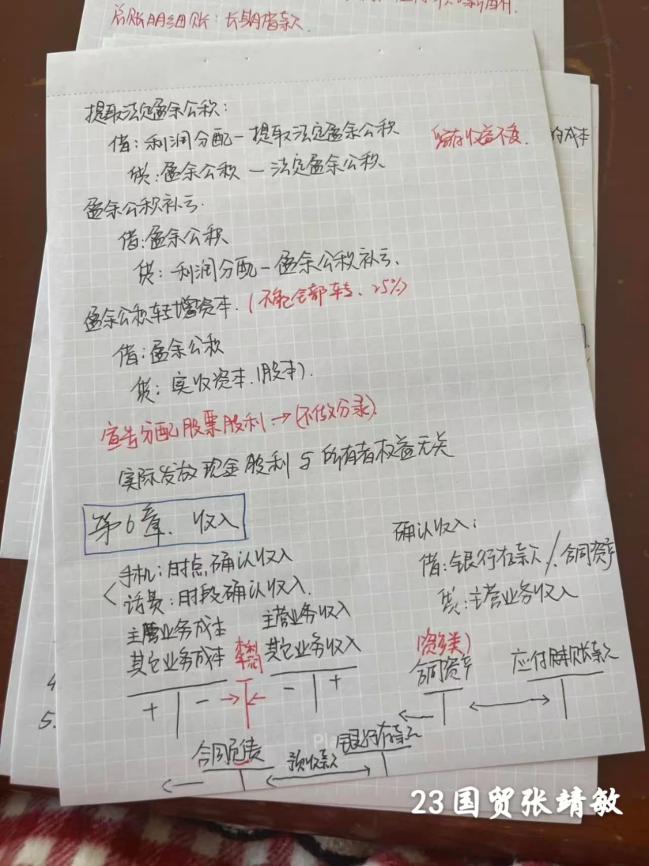 总账明细账：长期借款
提取法定盈余公积：
借：利润分配－提取法定盈余公积
留存收益不变
的成本
贷：盈余公积－法定盈余公积
盈余公积补亏
借：盈余公积
贷：利润分配－盈余公积补亏
盈余公积转增资本（不能全部转、25%）
借：盈余公积
贷：实收资本（股本）
宣告分配股票股利→（不做分录）
实际发放现金股利与所有者权益无关
第6章、收入
手机：时点确认收入
话费：时段确认收入
确认收入：
借：银行存款/合同资产
贷：主营业务收入
主营业务成本
其它业务成本
本年利润
主营业务收入
其它业务收入
+ －
－ +
(资产类)
合同资产
合同负债
预收账款
银行存款
4
5.
23国贸张靖敏